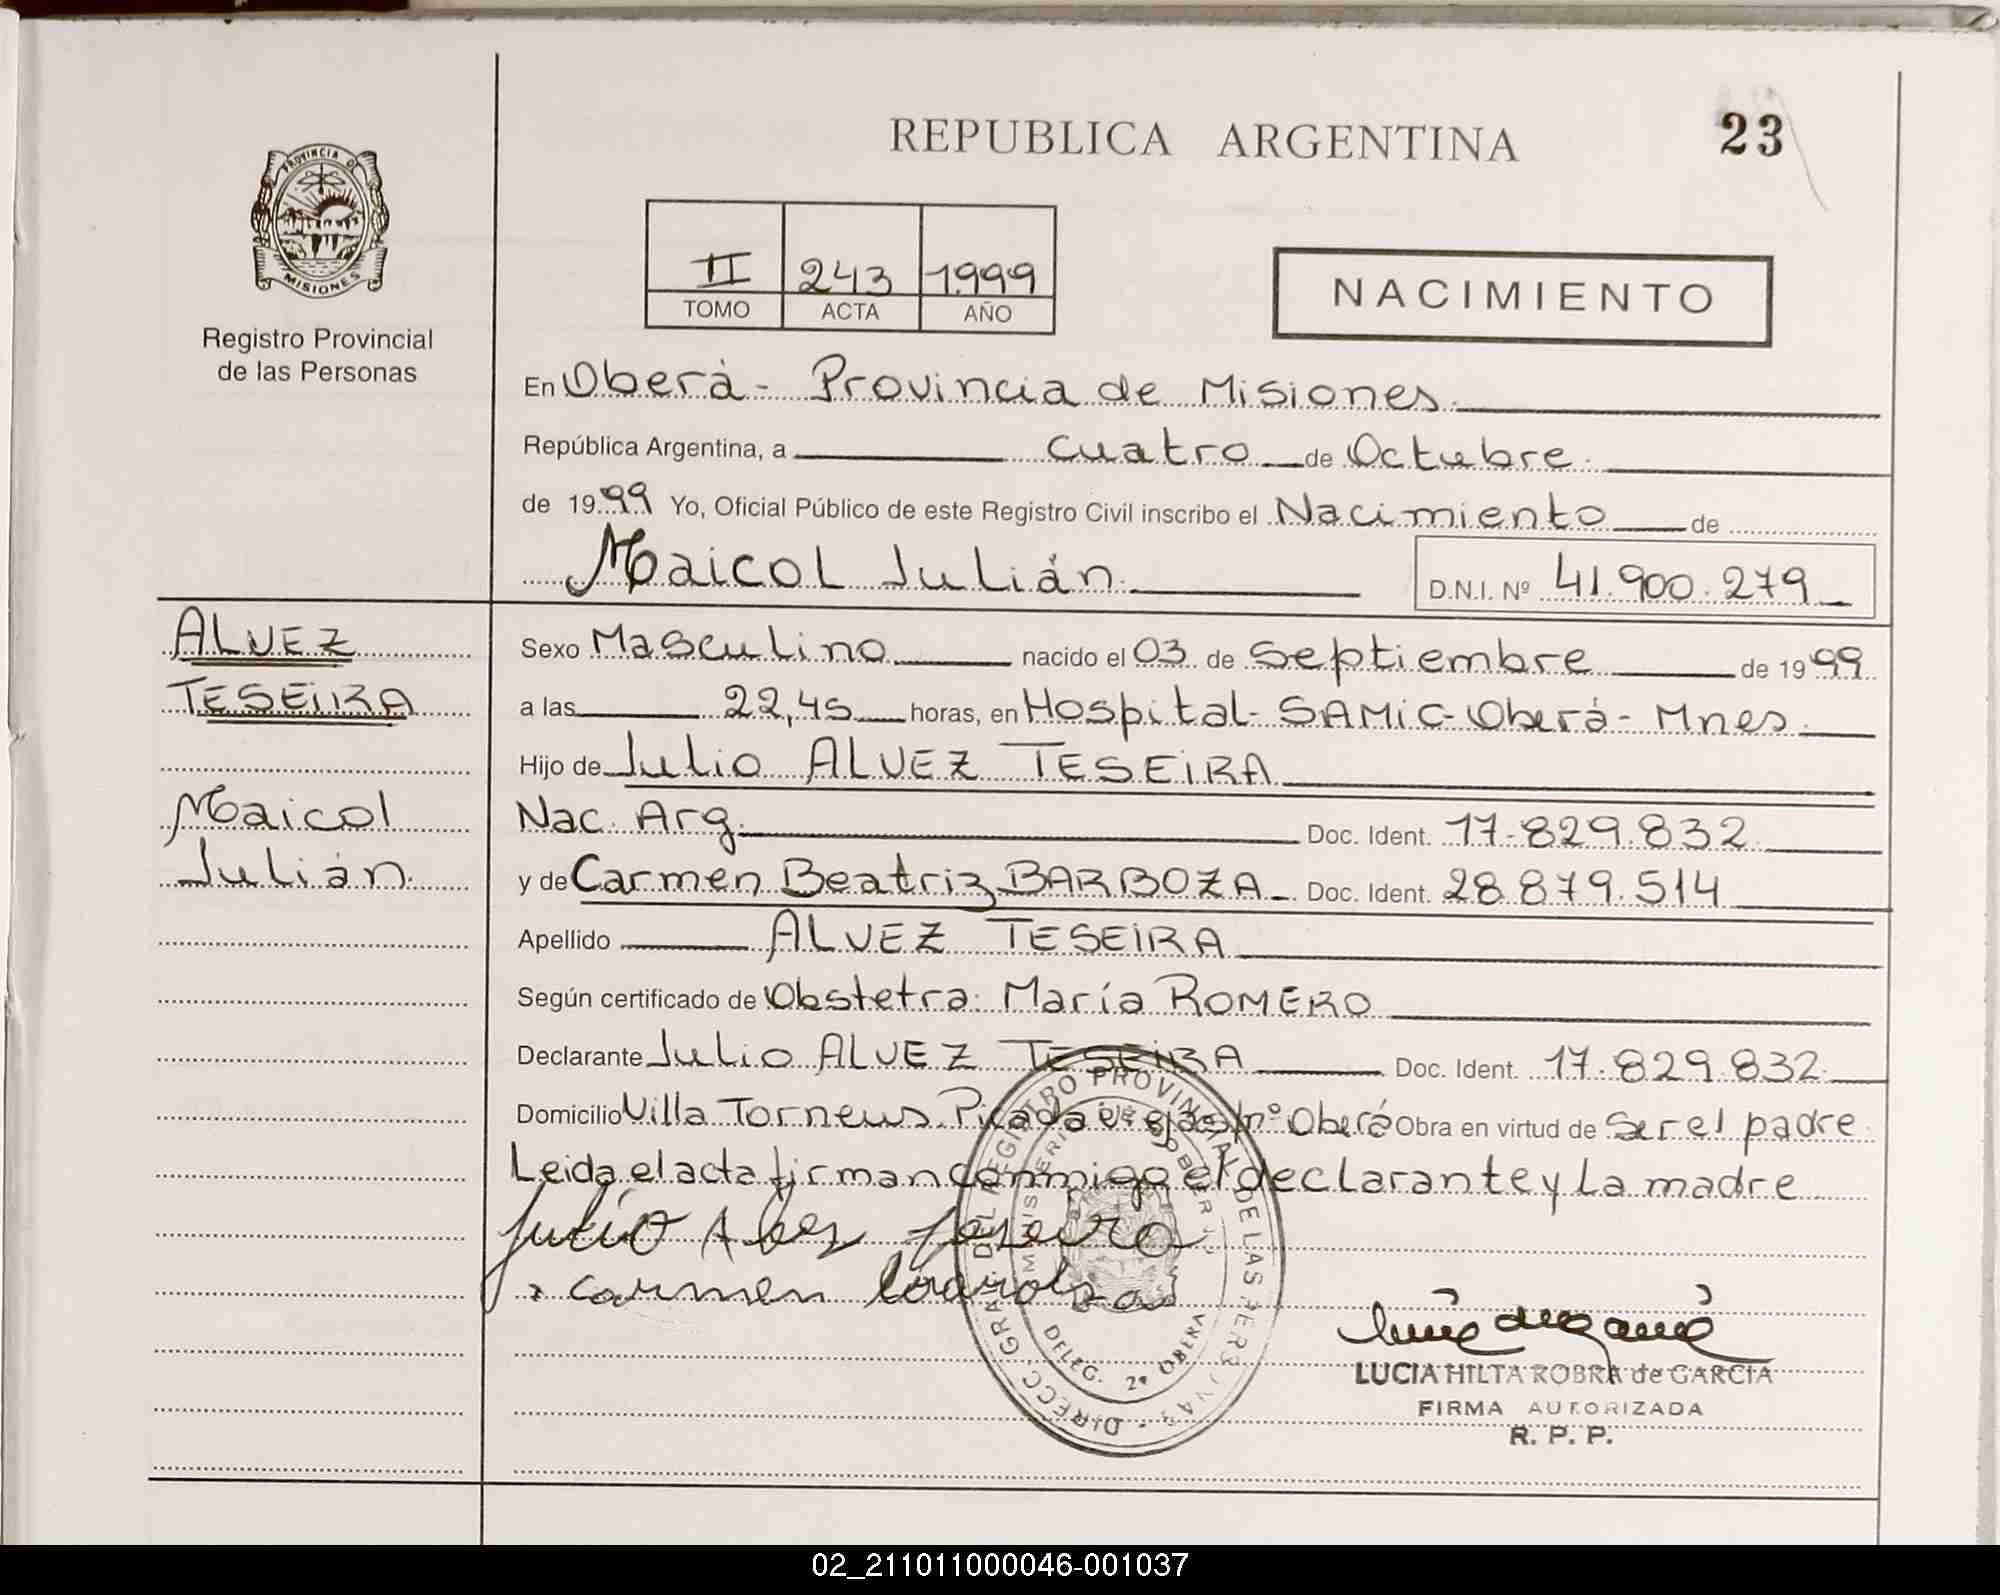 REPUBLICA ARGENTINA
23
PROVINCIA DE
MISIONES
Registro Provincial
de las Personas
II 243 1999
TOMO ACTA AÑO
NACIMIENTO
En Oberá - Provincia de Misiones.
República Argentina, a cuatro de Octubre.
de 1999 Yo, Oficial Público de este Registro Civil inscribo el Nacimiento de
Maicol Julián.
D.N.I. Nº 41.900.279
ALVEZ
TESEIRA
Maicol
Julián.
Sexo Masculino nacido el 03 de Septiembre de 1999
a las 22,45 horas, en Hospital - SAMIC - Oberá - Mnes.
Hijo de Julio ALVEZ TESEIRA
Nac. Arg. Doc. Ident. 17.829.832
y de Carmen Beatriz BARBOZA Doc. Ident. 28.879.514
Apellido ALVEZ TESEIRA
Según certificado de Obstetra: María ROMERO
Declarante Julio ALVEZ TESEIRA Doc. Ident. 17.829.832
Domicilio Villa Torneus. Picada Oberá Obra en virtud de Ser el padre
Leida el acta firman conmigo el declarante y la madre
Julio Alvez Teseira
Carmen Barboza
DIRECC. GRAL. DEL REGISTRO PROVINCIAL DE LAS PERSONAS
MINISTERIO DE GOBIERNO
DELEG. 2ª OBERA
LUCIA HILTA ROBRA de GARCIA
FIRMA AUTORIZADA
R. P. P.
02_211011000046-001037